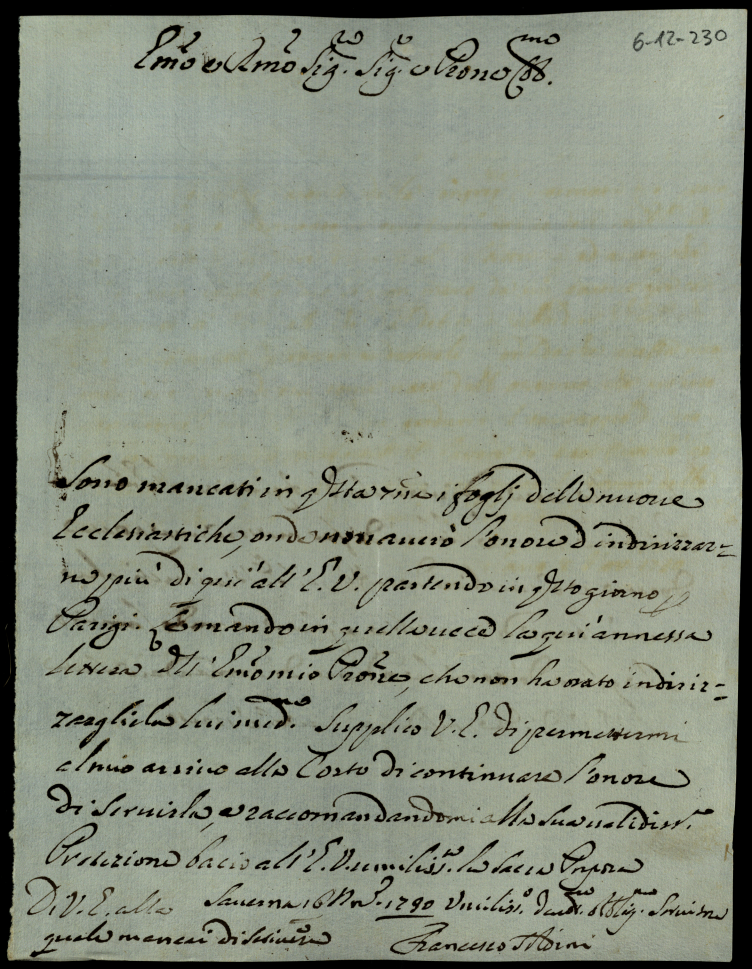 6-12-230
Emo e Rmo Sigre Sigre e Prone Colmo
Sono mancati in qsta i foglj delle nuove
Ecclesiastiche, onde non averò l'onore d'indirizzar-
ne più di qui all'E. V. partendo in qsto giorno p
Parigi. Le mando in quella vece la qui annessa
lettera dell'Emo mio Prone, che non ha osato indiriz-
zargliela lui medmo. Supplico V. E. di permettermi
al mio arrivo alla Corte di continuare l'onore
di servirla, e raccomandandomi alla sua validissa
Protezione bacio all'E. V. umilisste la Sacra Porpora
Di V. E. alla Saverna 16 1790 Umiliss. Obbligmo Servitore
quale mancai di scrivere Francesco